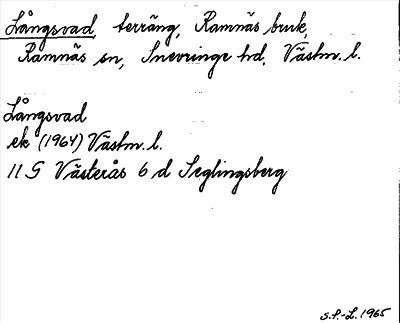 Långsvad, terräng, Ramnäs bruk,
Ramnäs sn, Snevringe hd, Västm. l.
Långsvad
ek (1964) Västm. l.
11 G Västerås 6 d Seglingsberg
S.P.-L. 1965